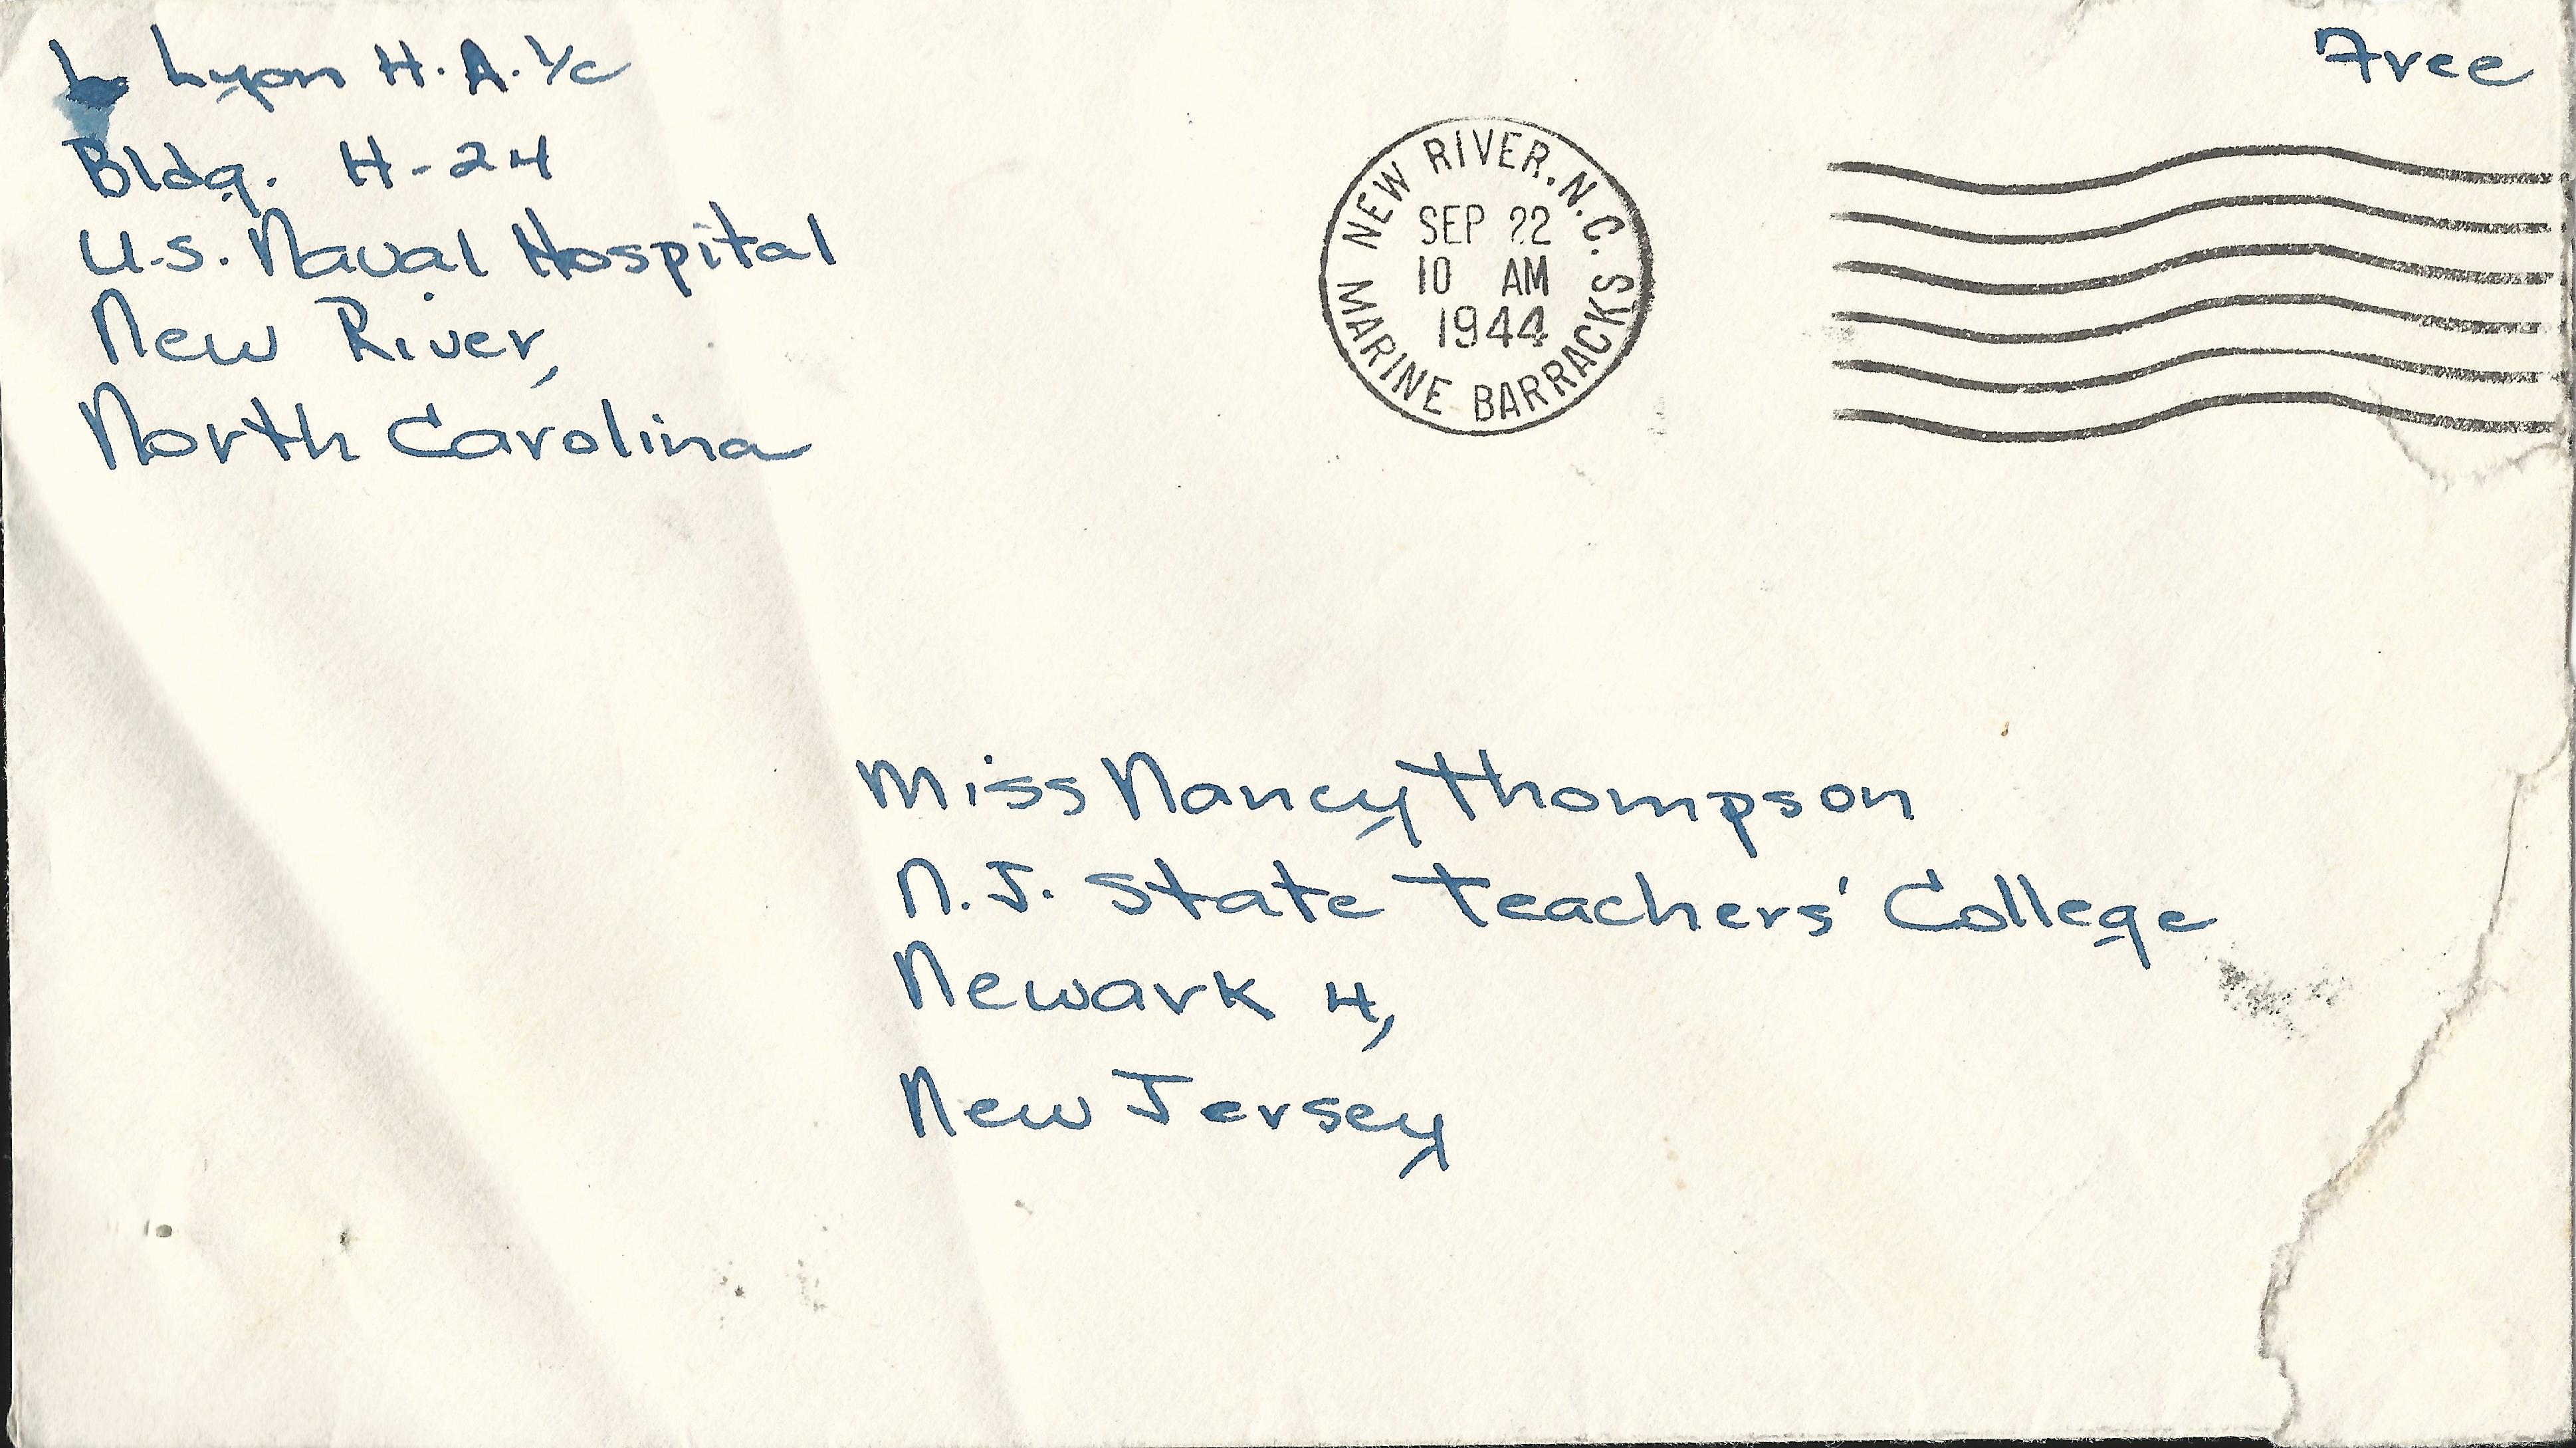 L Lyon H.A. 1/c
Bldg. H-24
U.S. Naval Hospital
New River,
North Carolina
Free
NEW RIVER, N.C.
SEP 22
10 AM
1944
MARINE BARRACKS
Miss Nancy Thompson
N.J. State Teachers' College
Newark 4,
New Jersey